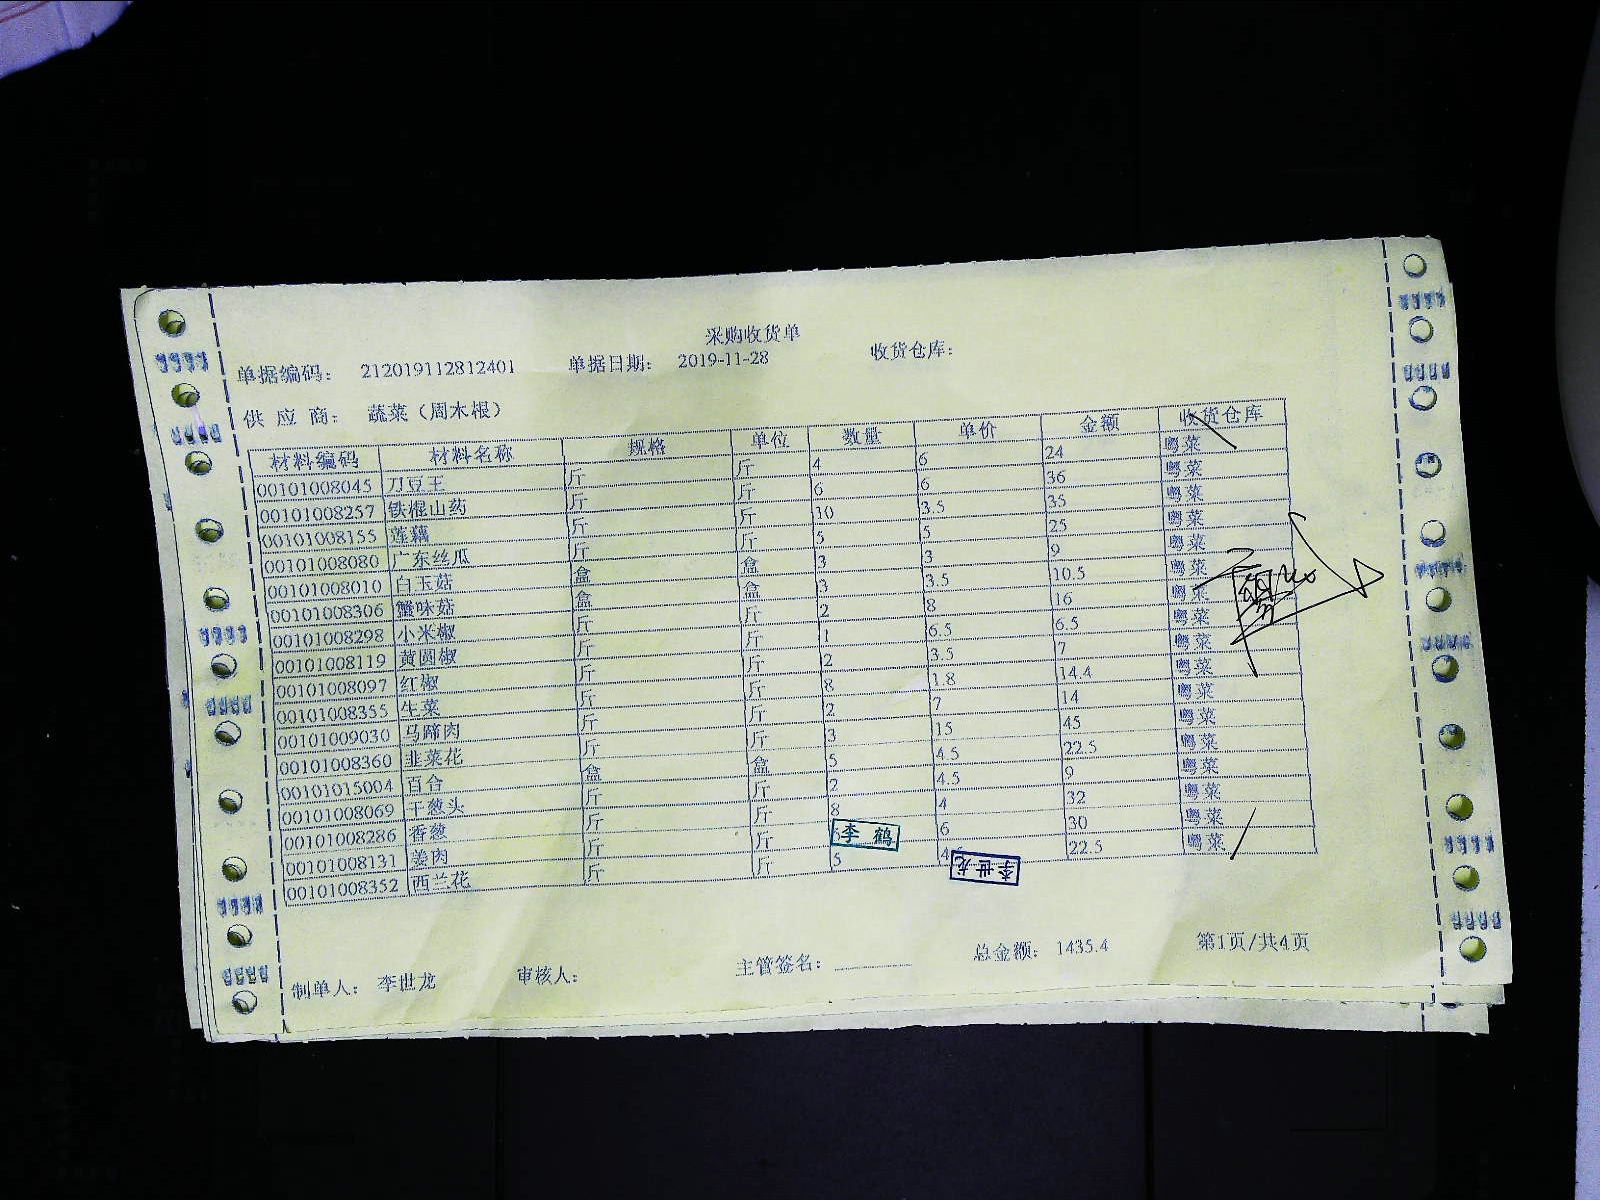 采购收货单
单据编码： 212019112812401 单据日期： 2019-11-28 收货仓库：
供 应 商： 蔬菜（周水根）
材料编码 材料名称 规格 单位 数量 单价 金额 收货仓库
00101008045 刀豆王 斤 斤 4 6 24 粤菜
00101008257 铁棍山药 斤 斤 6 6 36 粤菜
00101008155 莲藕 斤 斤 10 3.5 35 粤菜
00101008080 广东丝瓜 斤 斤 5 5 25 粤菜
00101008010 白玉菇 盒 盒 3 3 9 粤菜
00101008306 蟹味菇 盒 盒 3 3.5 10.5 粤菜
00101008298 小米椒 斤 斤 2 8 16 粤菜
00101008119 黄圆椒 斤 斤 1 6.5 6.5 粤菜
00101008097 红椒 斤 斤 2 3.5 7 粤菜
00101008355 生菜 斤 斤 8 1.8 14.4 粤菜
00101009030 马蹄肉 斤 斤 2 7 14 粤菜
00101008360 韭菜花 斤 斤 3 15 45 粤菜
00101015004 百合 盒 盒 5 4.5 22.5 粤菜
00101008069 干葱头 斤 斤 2 4.5 9 粤菜
00101008286 香葱 斤 斤 8 4 32 粤菜
00101008131 姜肉 斤 斤 6 30 粤菜
00101008352 西兰花 斤 斤 5 22.5 粤菜
李鹤
李世龙
总金额： 1435.4 第1页/共4页
制单人： 李世龙 审核人： 主管签名：